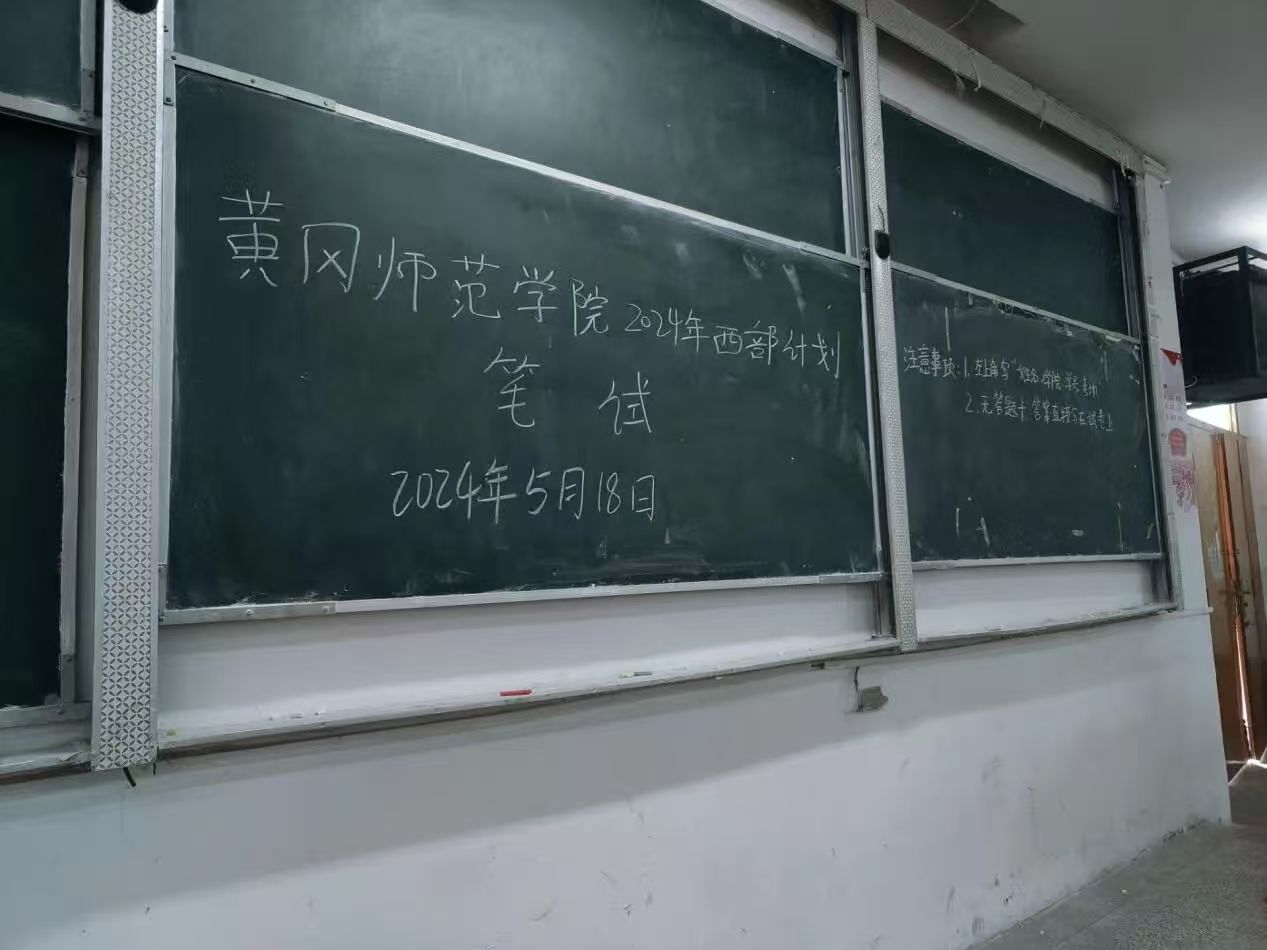 黄冈师范学院2024年西部计划
笔试
2024年5月18日
注意事项:1.左上角写"姓名、学院、学号
2.无答题卡 答案直接写在试卷上